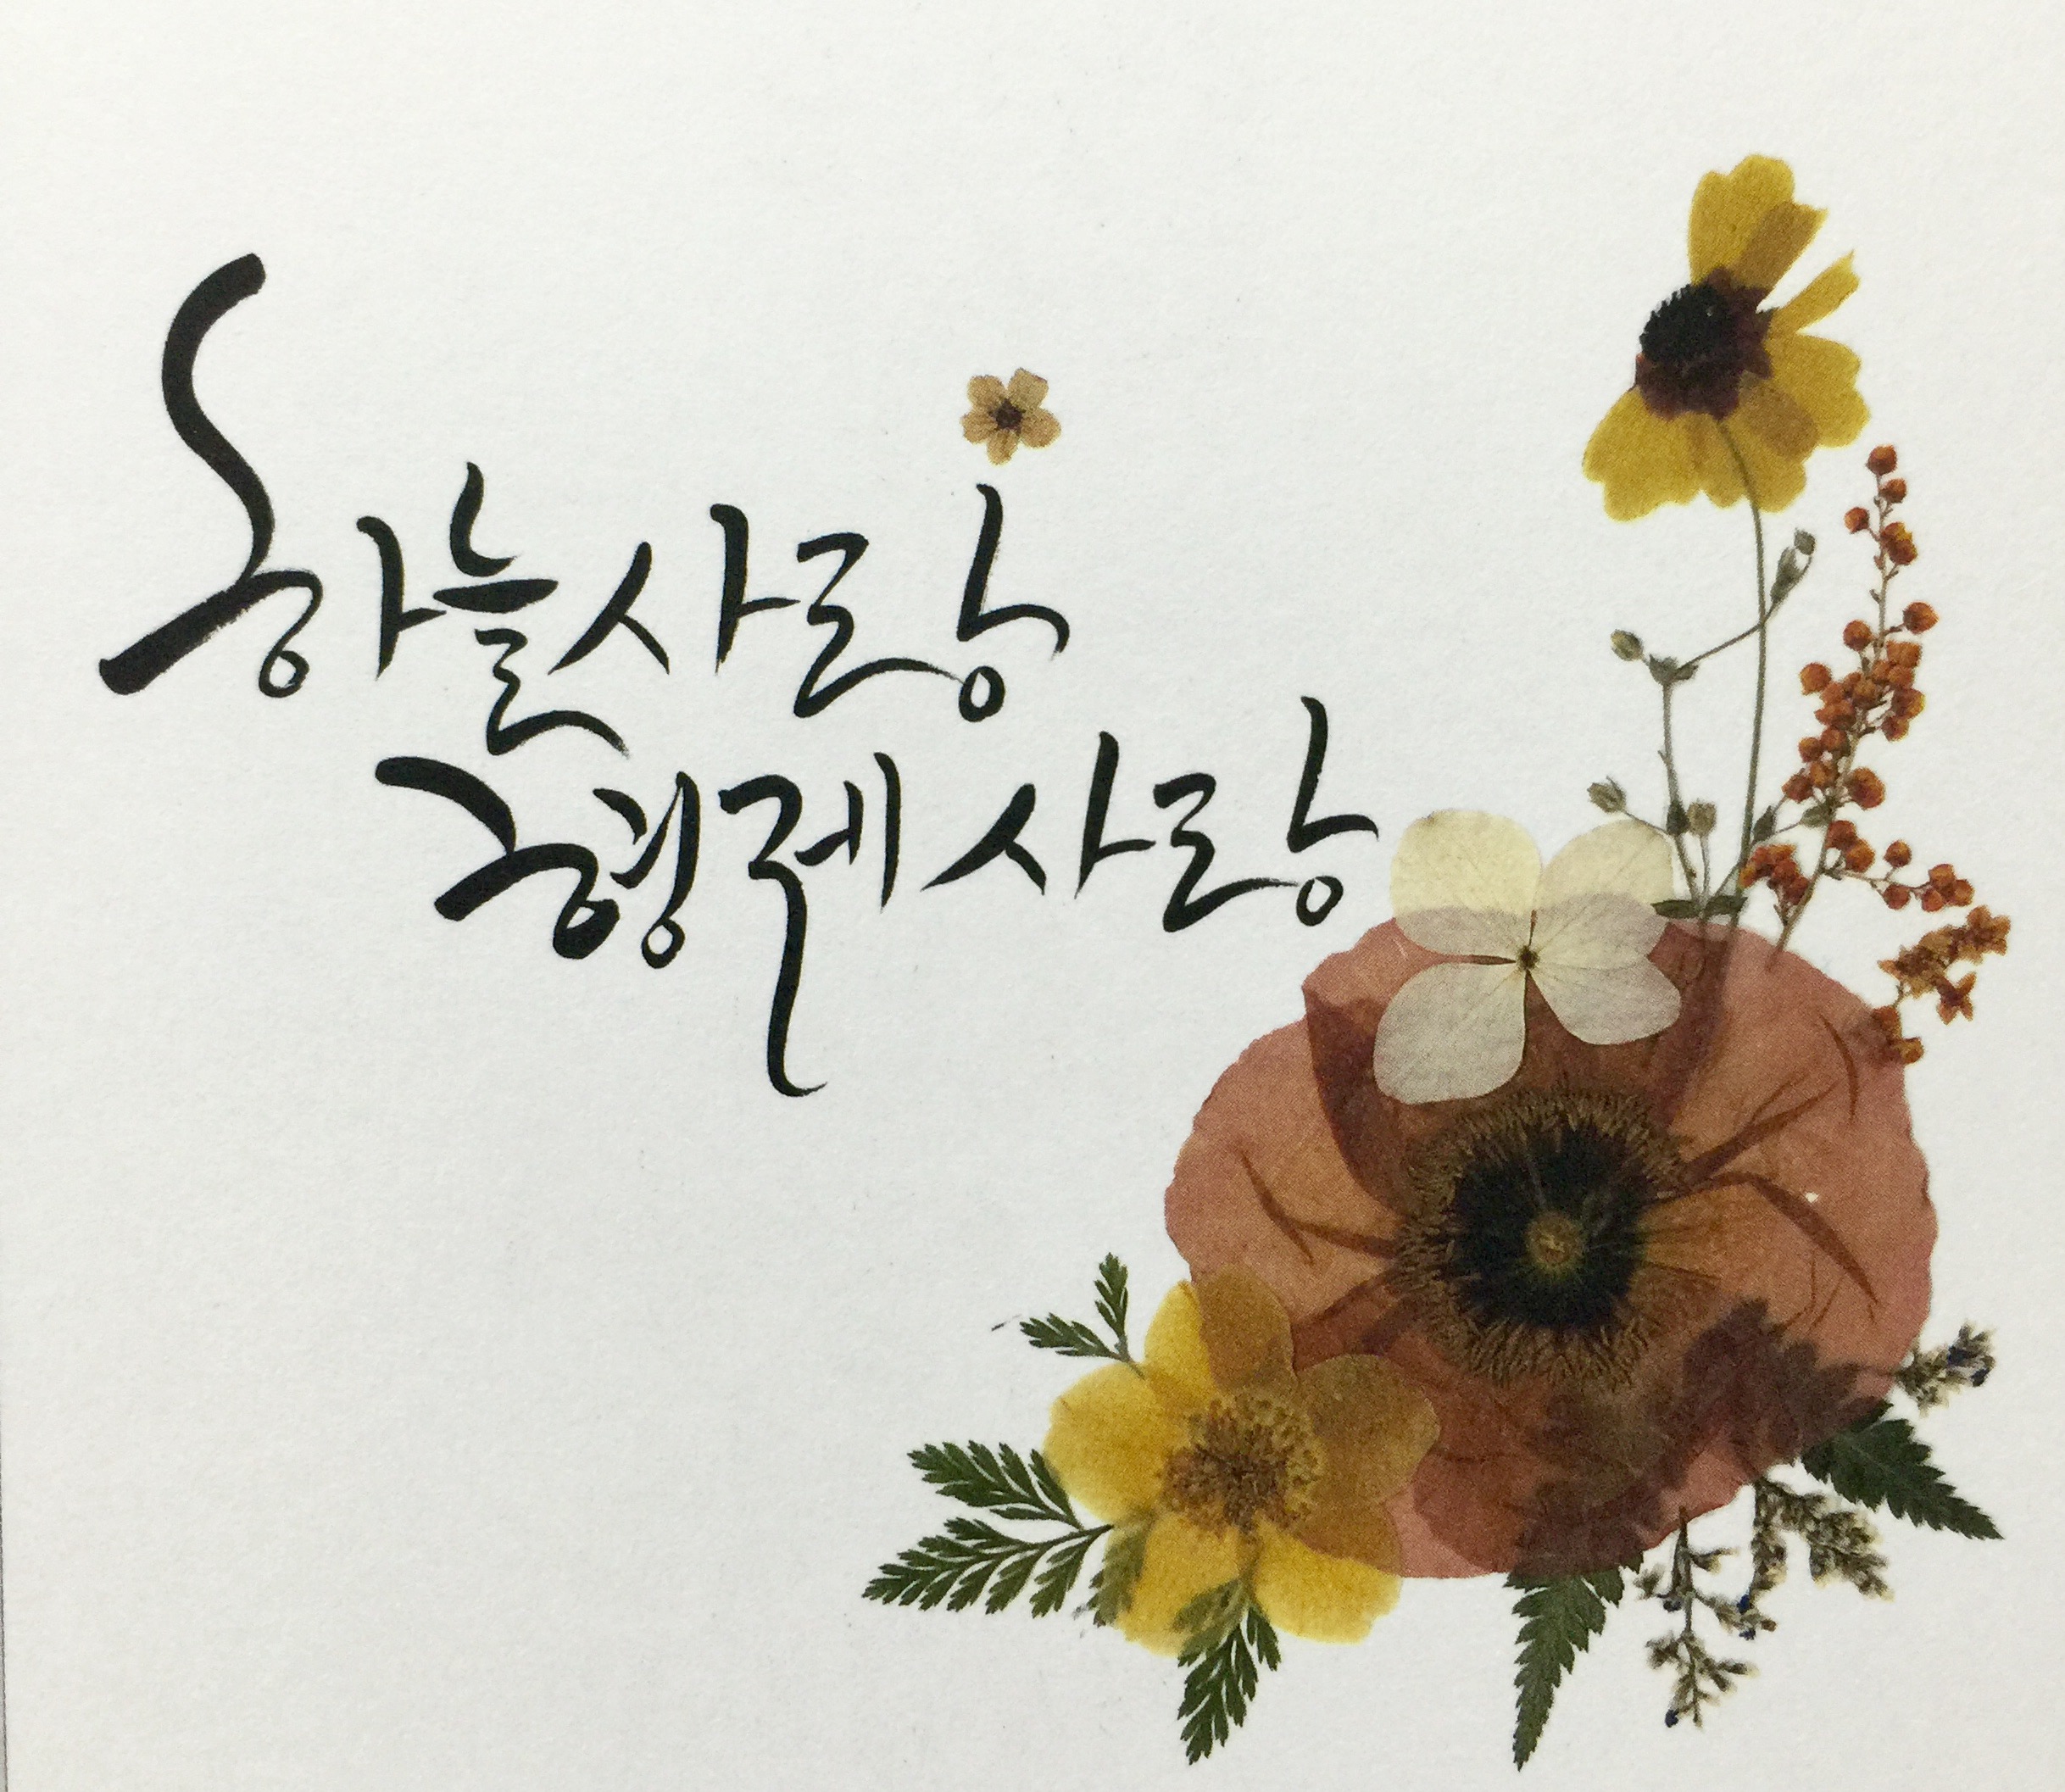 하늘사랑
형제사랑